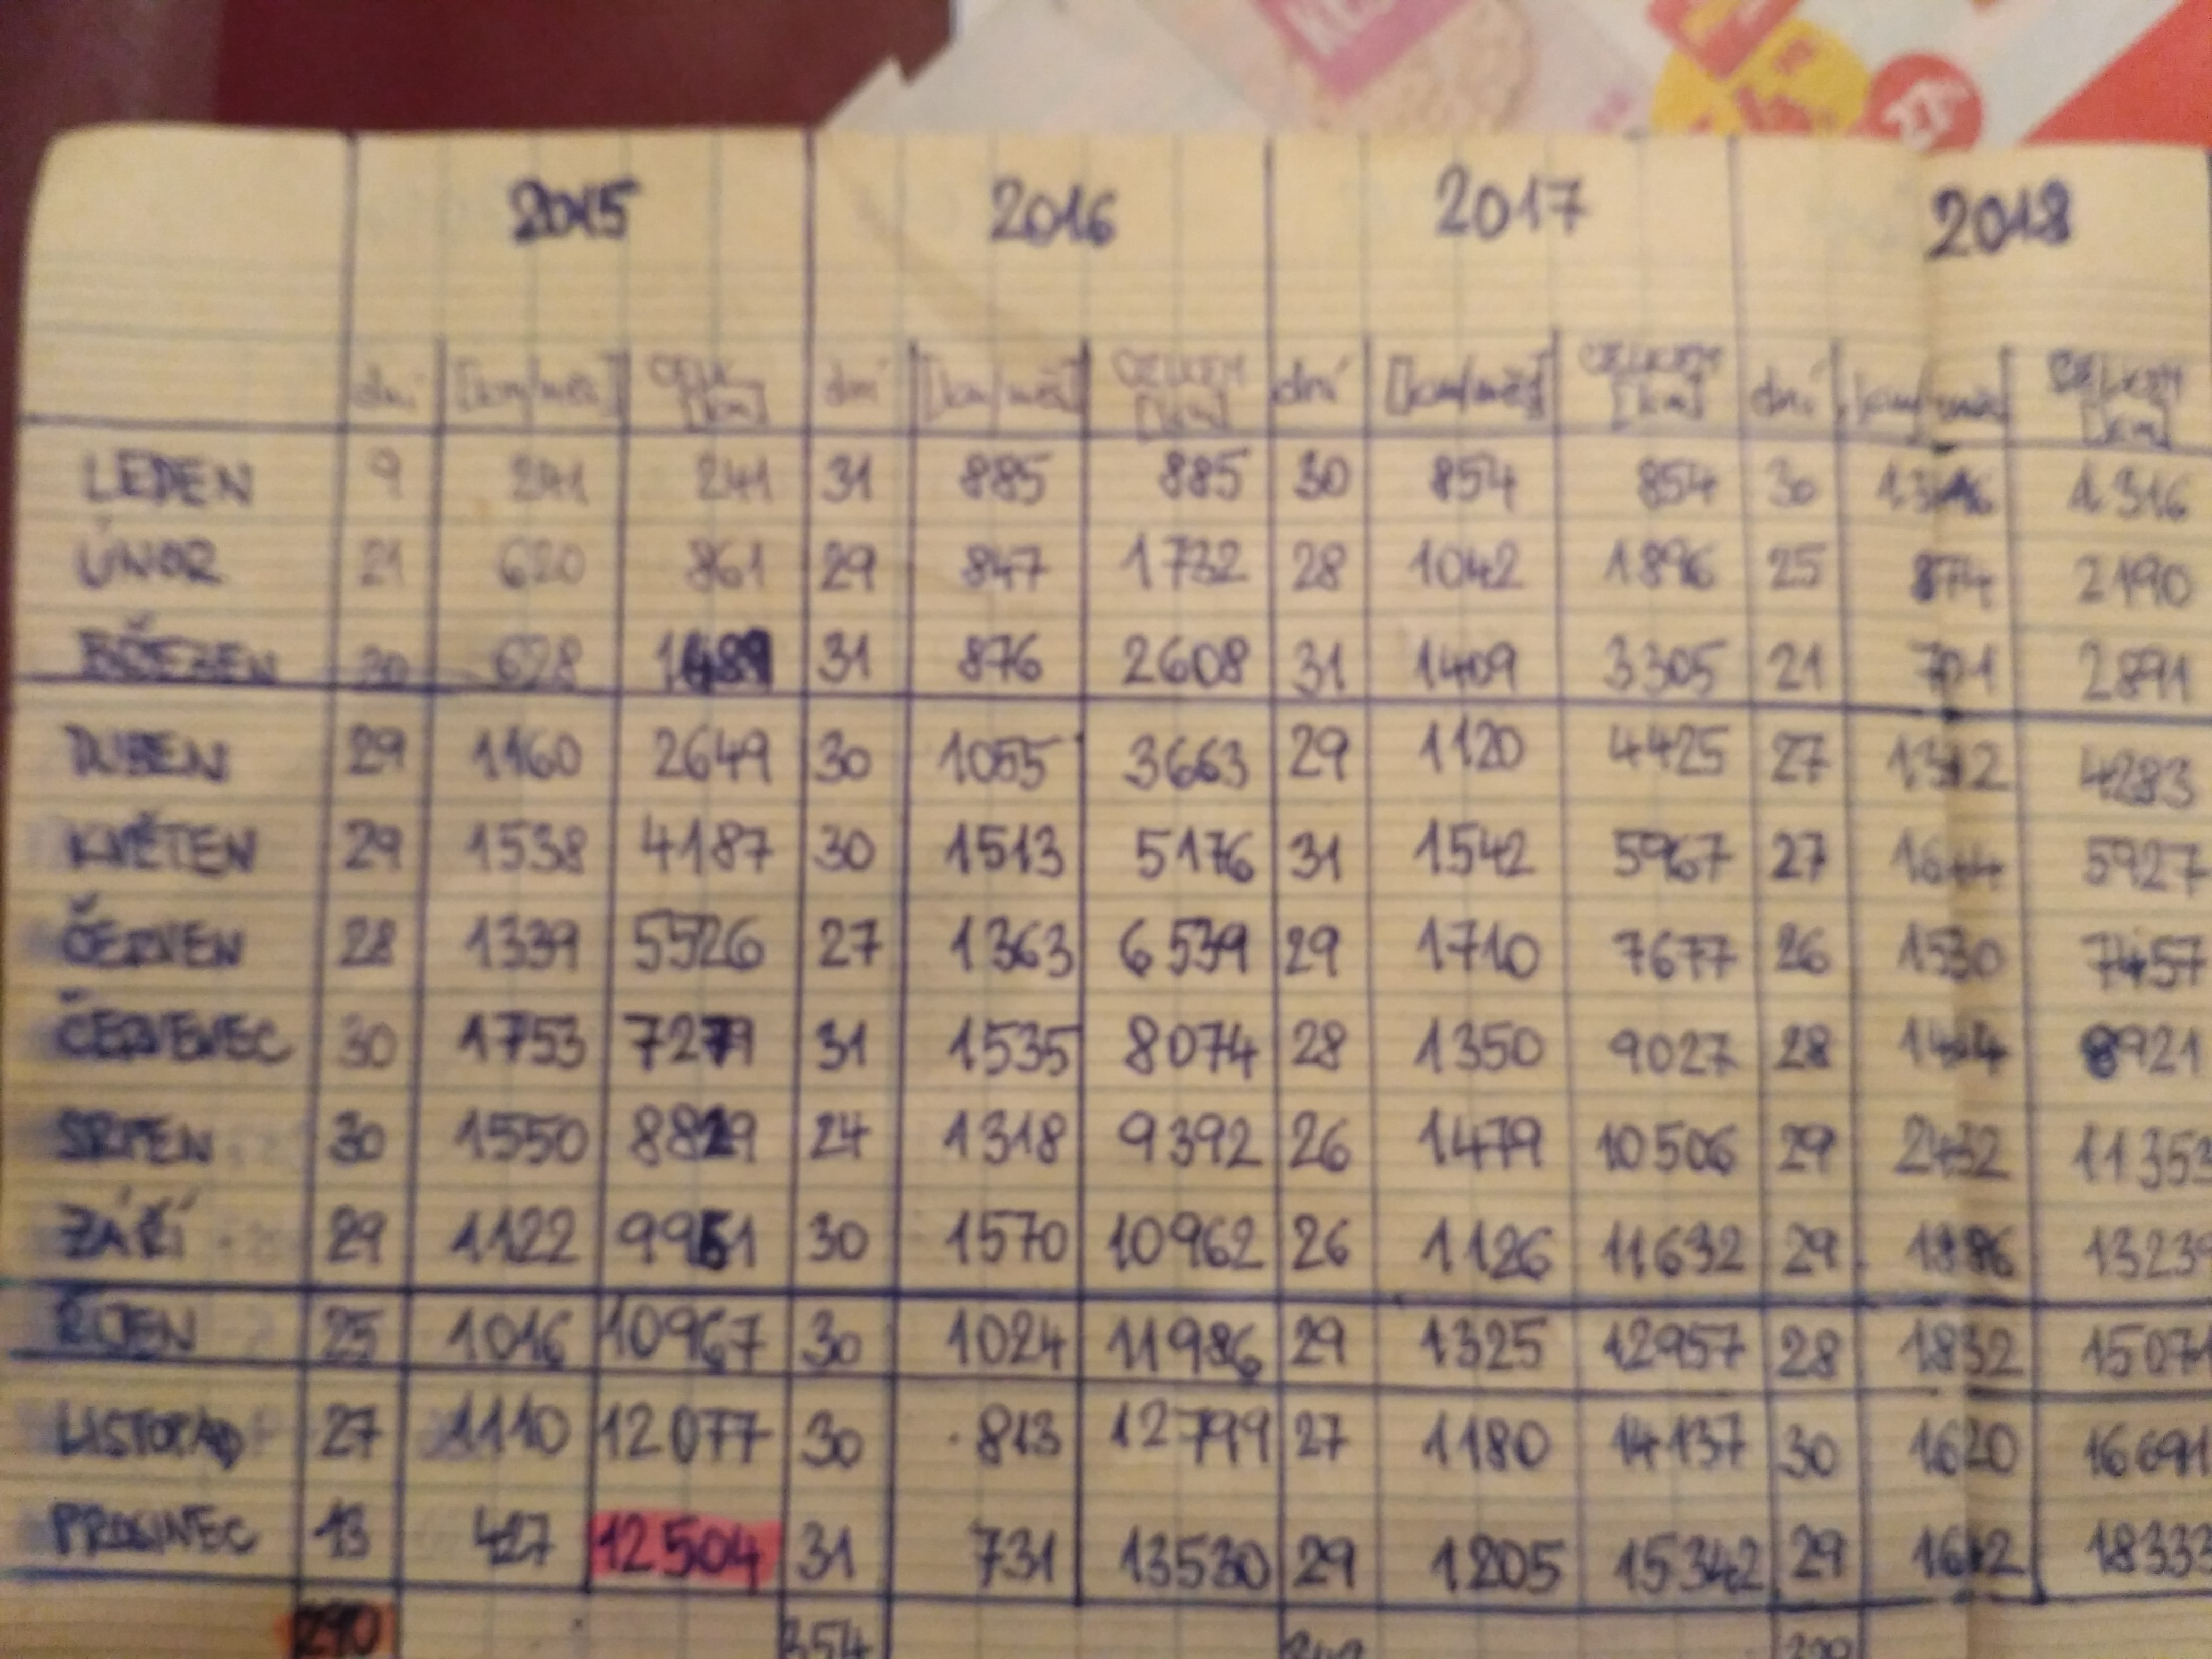 2015 2016 2017 2018
dní [km/měs] CELK. [km] dní [km/měs] CELKEM [km] dní [km/měs] CELKEM [km] dní [km/měs] CELKEM [km]
LEDEN 9 241 241 31 885 885 30 854 854 30 1316 1316
ÚNOR 21 620 861 29 847 1732 28 1042 1896 25 874 2190
BŘEZEN 20 628 1489 31 876 2608 31 1409 3305 21 701 2891
DUBEN 29 1160 2649 30 1055 3663 29 1120 4425 27 4283
KVĚTEN 29 1538 4187 30 1513 5176 31 1542 5967 27 1644 5927
ČERVEN 28 1339 5526 27 1363 6539 29 1710 7677 26 1530 7457
ČERVENEC 30 1753 7279 31 1535 8074 28 1350 9027 28 1464 8921
SRPEN 30 1550 8829 24 1318 9392 26 1479 10506 29 2432 11353
ZÁŘÍ 29 1122 9951 30 1570 10962 26 1126 11632 29 1886 13239
ŘÍJEN 25 1016 10967 30 1024 11986 29 1325 12957 28 1832 15071
LISTOPAD 27 1110 12077 30 813 12799 27 1180 14137 30 1620 16691
PROSINEC 13 427 12504 31 731 13530 29 1205 15342 29 18333
290 354